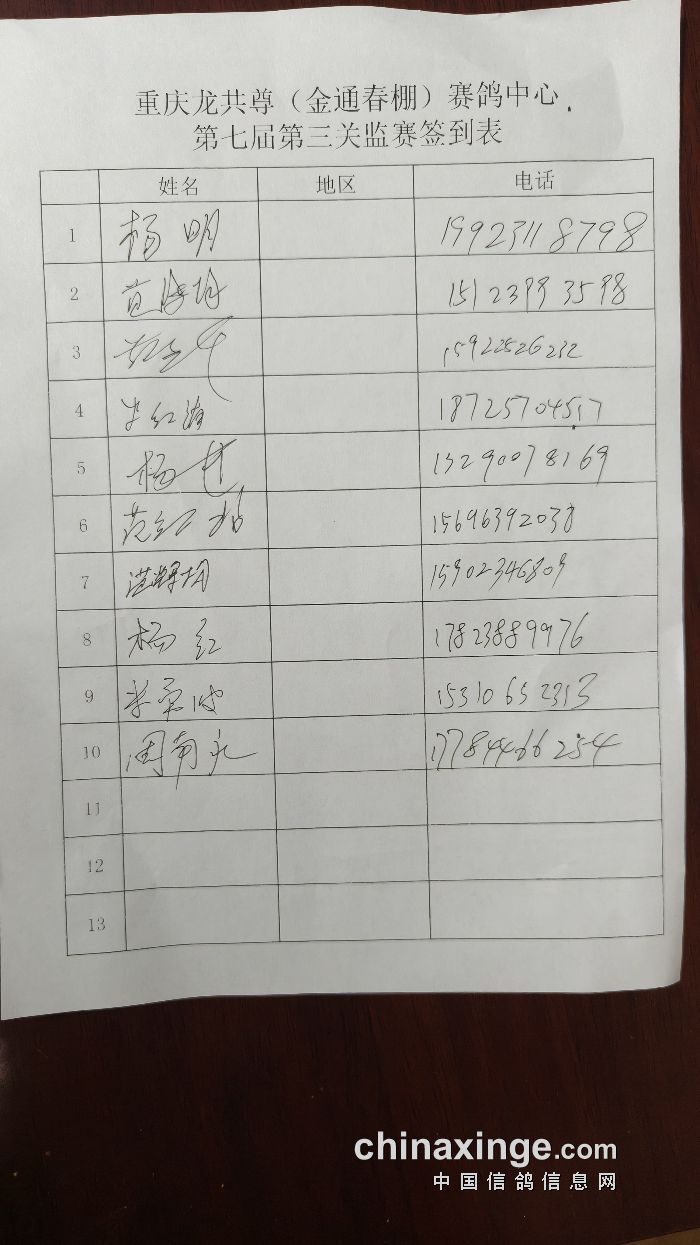 重庆龙共尊（金通春棚）赛鸽中心
第七届第三关监赛签到表
姓名 地区 电话
1 杨明 19923118798
2 15123993598
3 15922526232
4 18725704517
5 杨 13290078169
6 范红 15696392038
7 15902346809
8 杨红 17823889976
9 15310652313
10 周 17784466254
11
12
13
chinaxinge.com
中国信鸽信息网